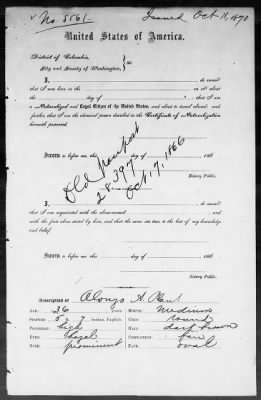 No. 5561. Issued Oct 11, 1870
United States of America.
District of Columbia,
City and County of Washington, ss:
I, do swear
that I was born in the on or about
the day of ; that I am
a Naturalized and Loyal Citizen of the United States, and about to travel abroad; and
further, that I am the identical person described in the Certificate of Naturalization
herewith presented.
Old Passport
28397
Oct. 17, 1866
Sworn to before me, this day of 186
Notary Public.
I, do swear
that I am acquainted with the above-named and
with the facts above stated by him, and that the same are true, to the best of my knowledge
and belief.
Sworn to before me, this day of 186
Notary Public.
Description of Alonzo A.
Age: 36 years. Mouth: Medium
Stature: 5 . 7 inches, English. Chin: round
Forehead: high Hair: dark brown
Eyes: hazel Complexion: fair
Nose: prominent Face: oval